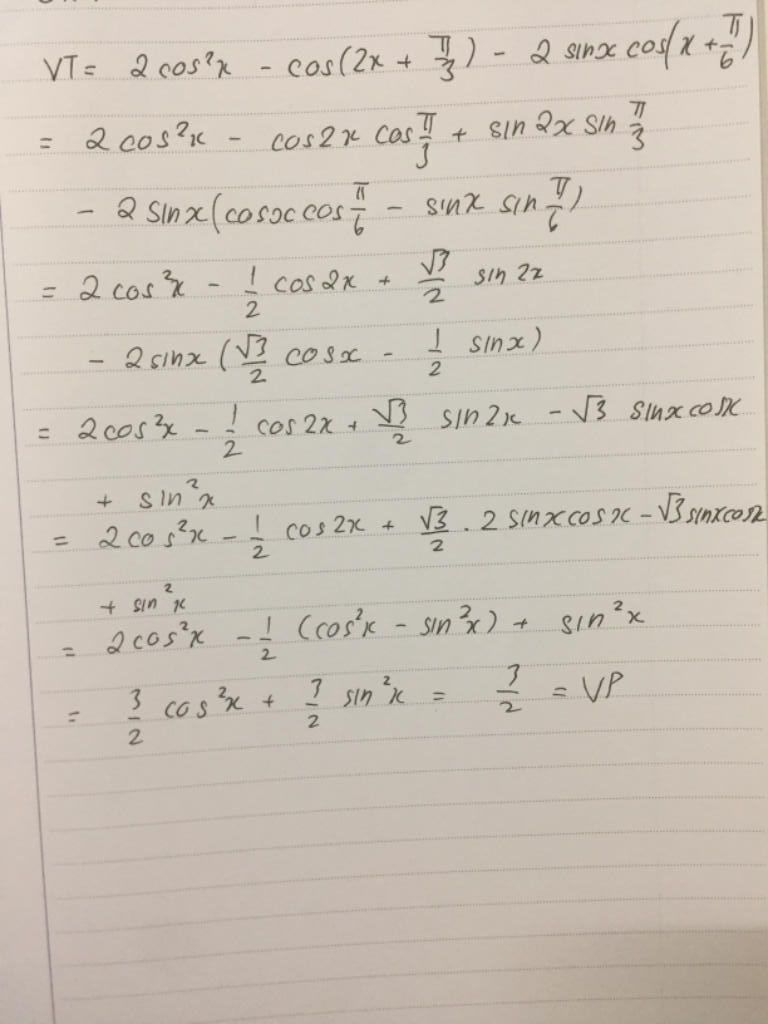 VT = 2 cos²x - cos(2x + π/3) - 2 sinx cos(x + π/6)
= 2 cos²x - cos2x cos π/3 + sin 2x sin π/3
- 2 sinx (cosx cos π/6 - sinx sin π/6)
= 2 cos²x - 1/2 cos2x + √3/2 sin 2x
- 2 sinx (√3/2 cosx - 1/2 sinx)
= 2cos²x - 1/2 cos2x + √3/2 sin2x - √3 sinx cosx
+ sin²x
= 2cos²x - 1/2 cos2x + √3/2 . 2 sinxcosx - √3 sinxcosx
+ sin²x
= 2cos²x - 1/2 (cos²x - sin²x) + sin²x
= 3/2 cos²x + 3/2 sin²x = 3/2 = VP